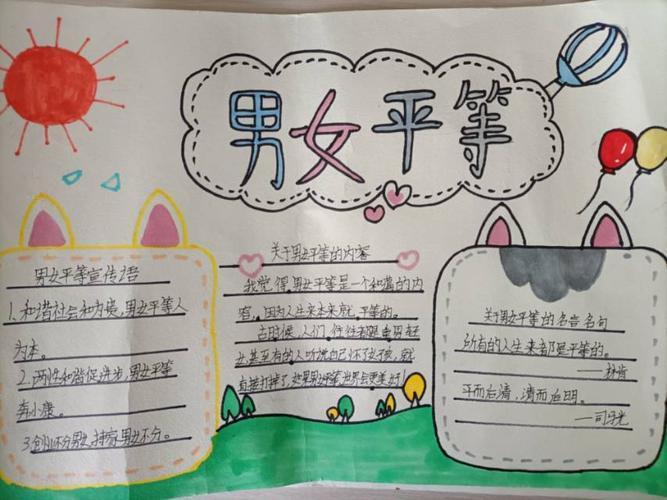 男女平等
男女平等宣传语
1.和谐社会和为贵,男女平等人
为本。
2.两性和谐促进步,男女平等
奔小康。
3.创业不分男女,持家男女不分。
关于男女平等的内容
我觉得,男女平等是一个和蔼的内
容,因为人生来本来就平等的。
古时候,人们往往都重男轻
女,甚至有的人听说自己怀了女孩,就
直接打掉了,如果男女平等,世界会更美好!
关于男女平等的名言名句
所有的人生来都是平等的。
平而后清,清而后明。
——司马光